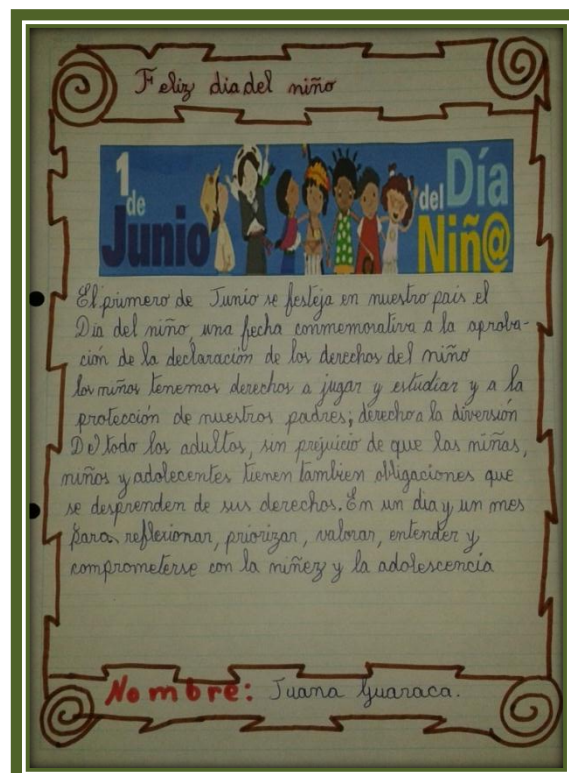 Feliz dia del niño
1 de Junio
Día del Niñ@
El primero de Junio se festeja en nuestro pais el
Dia del niño, una fecha conmemorativa a la aproba-
ción de la declaración de los derechos del niño
los niños tenemos derechos a jugar y estudiar y a la
protección de nuestros padres; derecho a la diversión
De todo los adultos, sin prejuicio de que las niñas,
niños y adolecentes tienen tambien obligaciones que
se desprenden de sus derechos. En un dia y un mes
para reflexionar, priorizar, valorar, entender y
comprometerse con la niñez y la adolescencia
Nombre: Juana Guaraca.